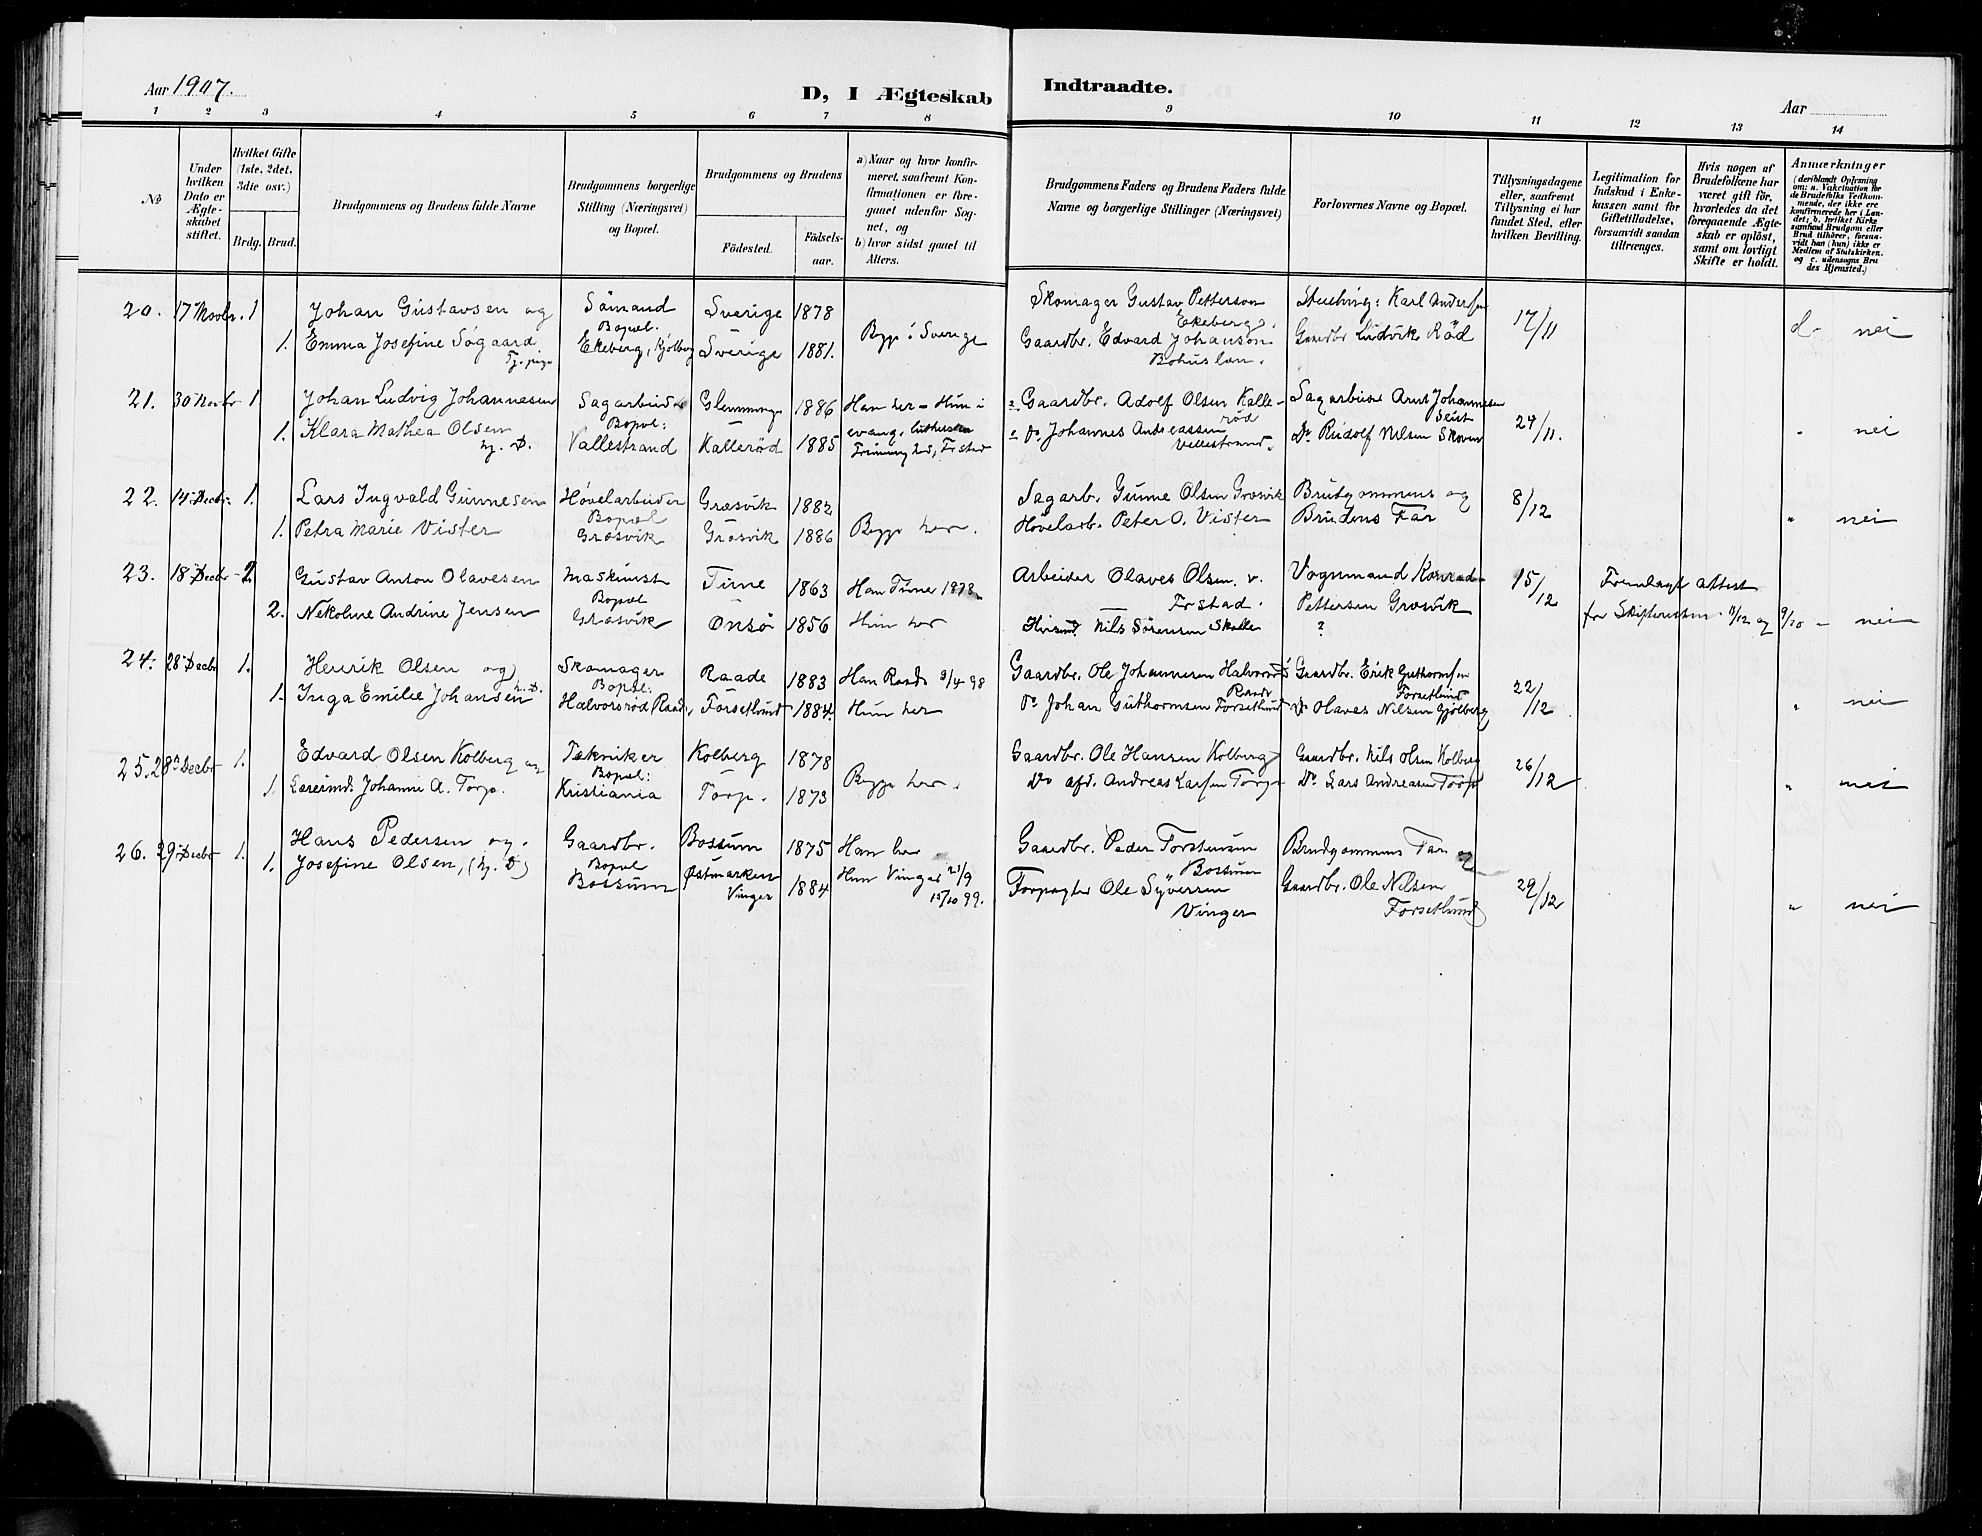 Aar 1907.
D, I Ægteskab Indtraadte.
Aar
1 2 3 4 5 6 7 8 9 10 11 12 13 14
No
Under hvilken Dato er Ægteskabet stiftet.
Hvilket Gifte (1ste, 2det, 3die osv.)
Brdg. Brud.
Brudgommens og Brudens fulde Navne
Brudgommens borgerlige Stilling (Næringsvei) og Bopæl.
Brudgommens og Brudens
Fødested. Fødselsaar.
a) Naar og hvor konfirmeret, saafremt Konfirmationen er foregaaet udenfor Sognet, og
b) hvor sidst gaaet til Alters.
Brudgommens Faders og Brudens Faders fulde Navne og borgerlige Stillinger (Næringsvei)
Forlovernes Navne og Bopæl.
Tillysningsdagene eller, saafremt Tillysning ei har fundet Sted, efter hvilken Bevilling.
Legitimation for Indskud i Enkekassen samt for Giftetilladelse, forsaavidt saadan tiltrænges.
Hvis nogen af Brudefolkene har været gift før, hvorledes da det foregaaende Ægteskab er opløst, samt om lovligt Skifte er holdt.
Anmærkninger (deriblandt Oplysning om: a. Vakcination for de Brudefolks Vedkommende, der ikke ere konfirmerede her i Landet; b. hvilket Kirkesamfund Brudgom eller Brud tilhører, forsaavidt han (hun) ikke er Medlem af Statskirken, og c. udensogns Brudes Hjemsted.)
20. 17 Novbr. 1 Johan Gustavsen og Sömand Sverige 1878 Skomager Gustav Petterson Karl Andersen 17/11
Bopæl: Ekeberg.
1. Emma Josefine Søgaard Ekeberg, Kjølberg Sverige 1881. Begge i Sverige Gaardbr. Edvard Johanson Gaardbr Ludvik Röd d- nei
Tj. pige Bohuslän.
21. 30 Novbr 1 Johan Ludvig Johannesen Sagarbeider Glemminge 1886 Han her - Hun i Gaardbr. Adolf Olsen Kallerød Sagarbeider Arnt Johannesen
Bopæl: evang. luthersk 24/11.
1. Klara Mathea Olsen Vallestrand Kallerød 1885 Frimenighed, Frstad Do Johannes Andreassen Vallestrand. Do Rudolf Nilsen Skoven " nei
hj. D.
22. 14 Decbr. 1. Lars Ingvald Gunnesen Høvelarbeider Græsvik 1882 Sagarb. Gunne Olsen Græsvik Brudgommens og 8/12
Bopæl
1. Petra Marie Vister Græsvik Græsvik 1886 Begge her. Høvelarb. Peter O. Vister Brudens Far " nei
23. 18 Decbr - 2. Gustav Anton Olavesen Maskinist Tune 1863 Han Tune 1878 Arbeider Olaves Olsen. v. Vognmand Konrad 15/12 Fremlagt attest
Bopæl Frstad.
2. Nekoline Andrine Jensen Græsvik Onsö 1856 Hun her Nils Sörensen Skalle Pettersen Græsvik for Skifteretten 11/12 og 9/10 - nei
?
24. 28 Decbr 1. Henrik Olsen og Skomager Raade 1883 Han Raade 3/4 98 Gaardbr. Ole Johannesen Halvorsrød Gaardbr. Erik Guthormsen
Bopæl: Raade Forsetlund 22/12
1. Inga Emilie Johansen h. D. Halvorsrød Raade, Forsetlund 1884. Hun her Do Johan Guthormsen Forsetlund Do Olaves Nilsen Gjølberg " nei
25. 28 Decbr 1. Edvard Olsen Kolberg og Tekniker Kolberg 1878 Gaardbr. Ole Hansen Kolberg Gaardbr. Nils Olsen Kolberg 26/12
Bopæl:
1. Lærerinde Johanne A. Torp. Kristiania Torp. 1873 Begge her. Do afd. Andreas Larsen Torp Do Lars Andreasen Torp " nei
26. 29 Decbr 1. Hans Pedersen og. Gaardbr. Bossum 1875 Han her Gaardbr. Peder Torstensen Brudgommens Far og
Bopæl Bossum
1. Josefine Olsen, (hj. D) Bossum Østmarken Vinger 1884 Hun Vinger 21/9 15/10 99. Forpagter Ole Syversen Gaardbr. Ole Nilsen 29/12 " nei
Vinger Forsetlund